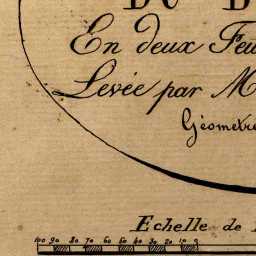 En deux
Levée par M
Géometre
Echelle de
100 90 80 70 60 50 40 30 20 10 0